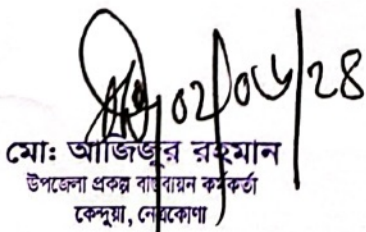 ০২/০৬/২৪
মো: আজিজুর রহমান
উপজেলা প্রকল্প বাস্তবায়ন কর্মকর্তা
কেন্দুয়া, নেত্রকোণা